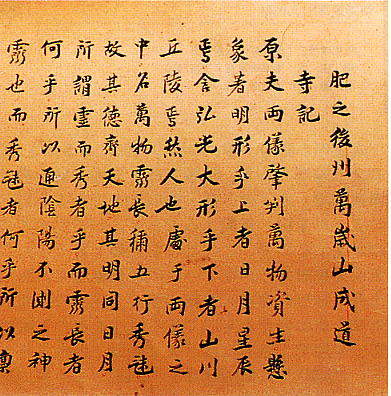 肥之後州萬歲山成道
寺記
原夫両儀肇判萬物資生懸
象著明形乎上者日月星辰
焉含弘光大形乎下者山川
丘陵焉然人也處于両儀之
中名萬物靈長稱五行秀
故其德齊天地其明同日月
所謂靈而秀者乎而靈長者
何乎所以通陰陽不測之神
靈也而秀者何乎所以稟